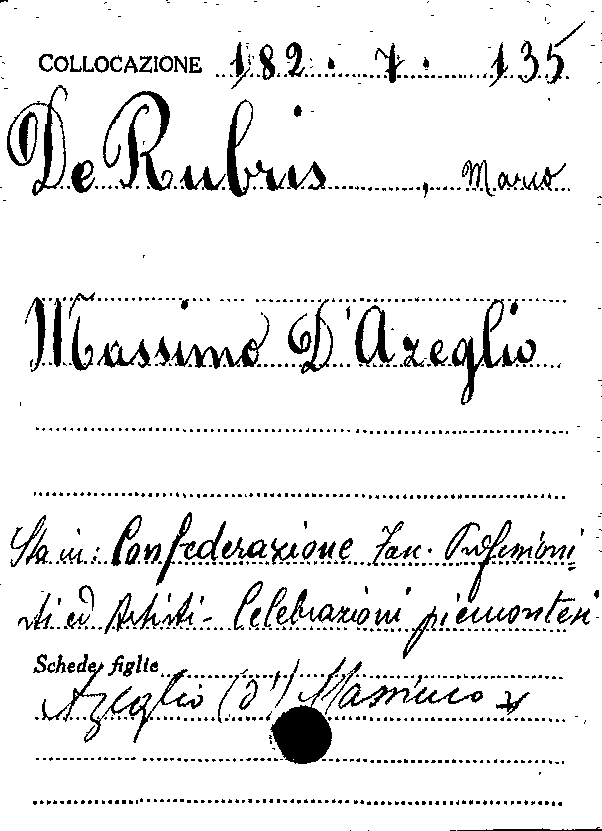 COLLOCAZIONE 182 . 7 . 135
De Rubris , Mario
Massimo D'Azeglio
Sta in: Confederazione Fasc. Professioni=
sti ed Artisti - Celebrazioni piemontesi
Schede figlie
Azeglio (d') Massimo